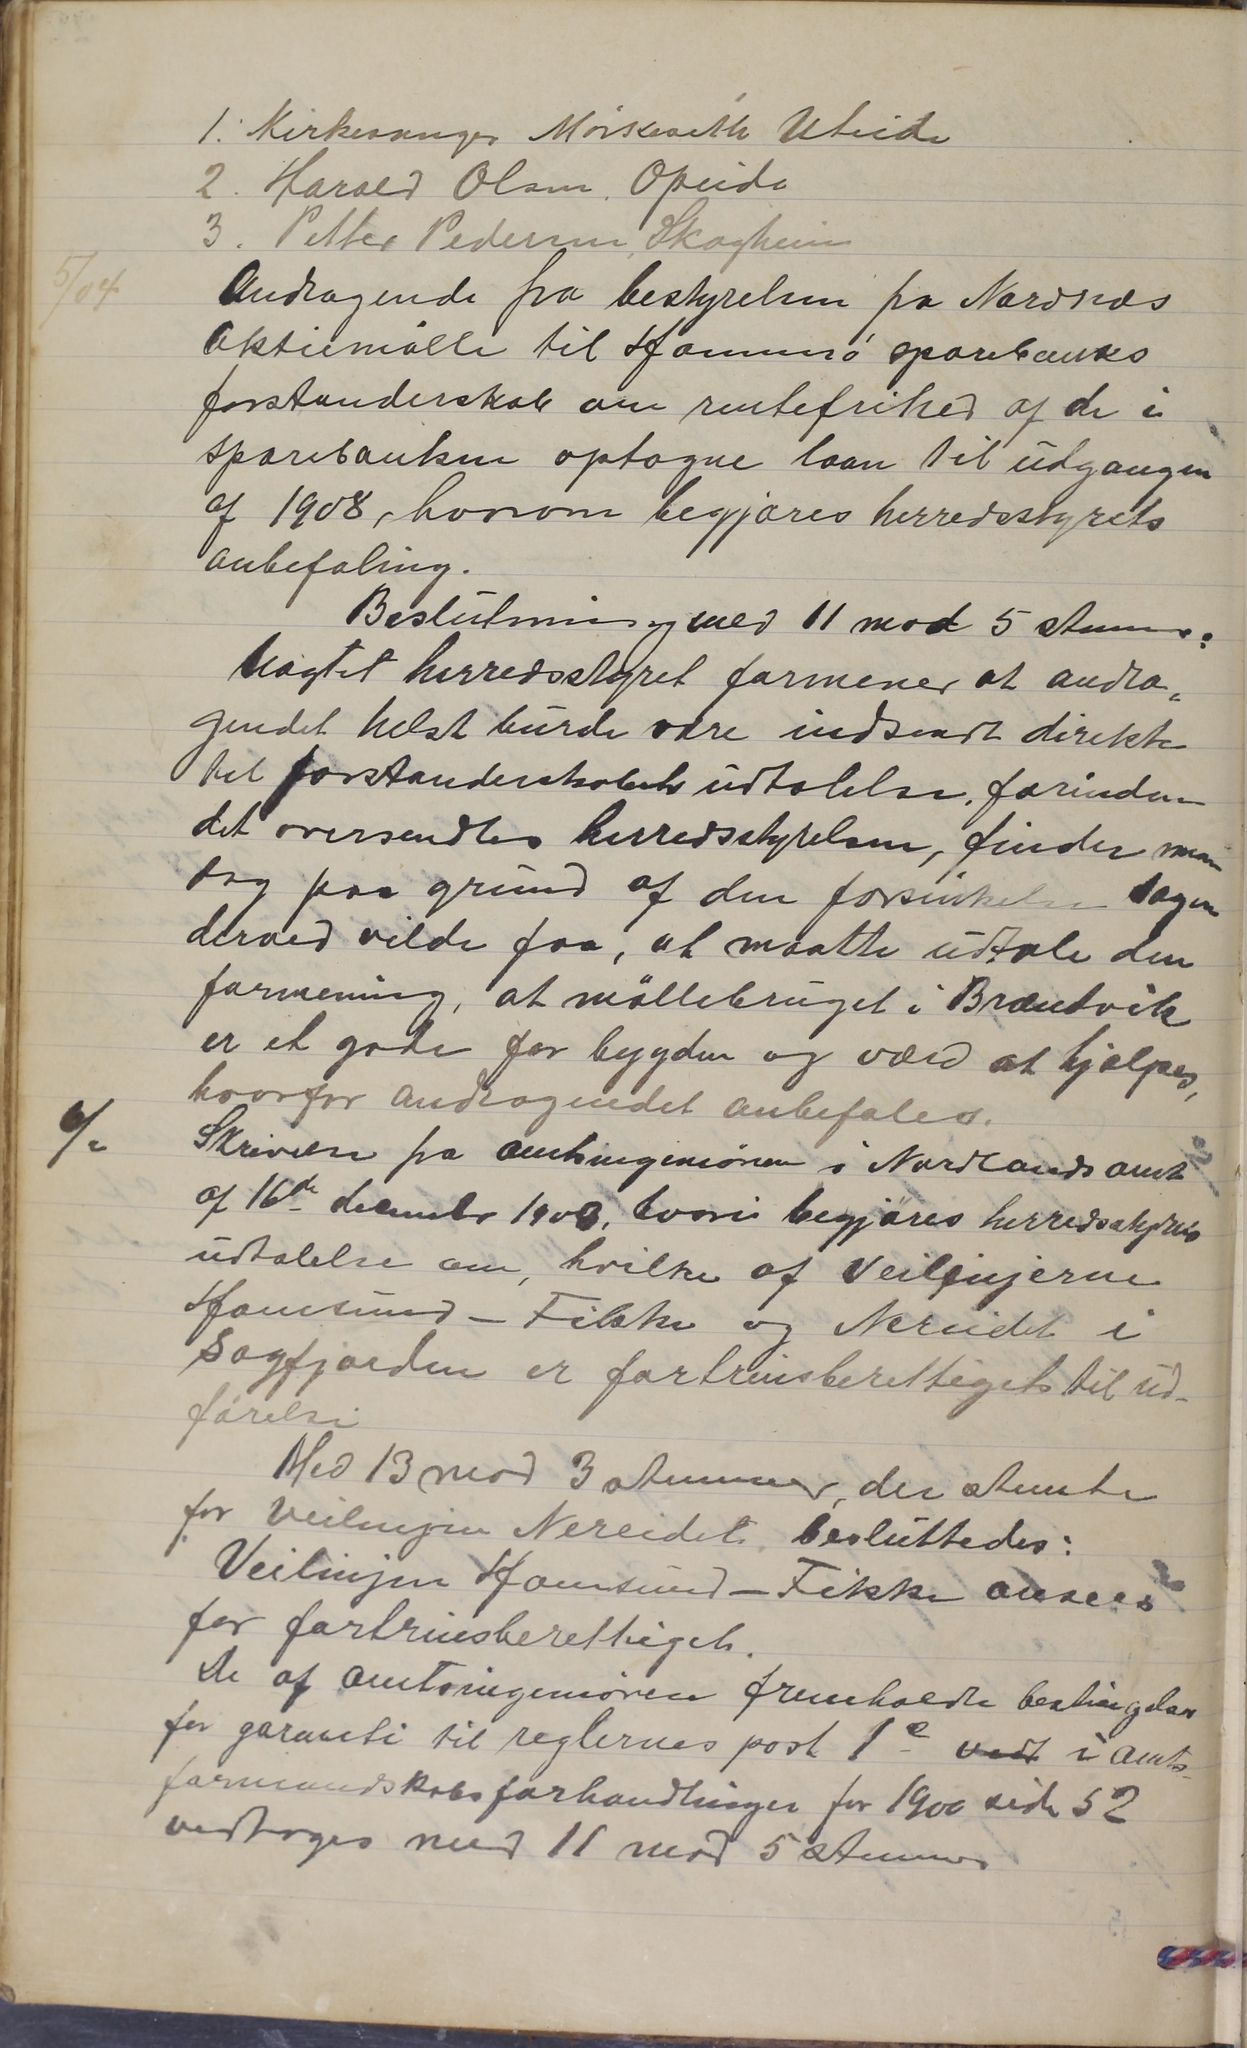 1. Kirkesanger Mörkseth Uteide
2. Harald Olsen, Opeide
3. Petter Pedersen, Skogheim
5/04 Andragende fra bestyrelsen fra Nordnæs
Aktiemölle til Hammerö sparebanks
forstanderskab om rentefrihed af de i
sparebanken optagne laan til udgangen
af 1908, hvorom begjæres herredsstyrets
anbefaling.
Beslutning med 11 mod 5 stemmer:
Uagtet herredsstyret formener at andra-
gendet helst burde være indsendt direkte
til forstanderskabets udtalelse, forinden
det oversendtes herredsstyrelsen, finder man
dog paa grund af den forsinkelse sagen
derved vilde faa, at maatte udtale den
formening, at möllebruget i Brændvik
er et gode for bygden og værd at hjelpes,
hvorfor andragendet anbefales.
6/ Skrivelse fra amtsingeniören i Nordlands amt
af 16de december 1903, hvori begjæres herredsstyrets
udtalelse om, hvilke af Veilinjerne
Hamsund – Fikke og Nereidet i
Sagfjorden er fortrinsberettiget til ud-
förelse
Med 13 mod 3 stemmer, der stemte
for veilinjen Nereidet, besluttedes:
Veilinjen Hamsund – Fikke ansees
for fortrinsberettiget.
De af amtsingeniören fremholdte betingelser
for garanti til reglernes post 1e vedt i amts-
formandskabsforhandlinger for 1900 side 52
vedtoges med 11 mod 5 stemmer